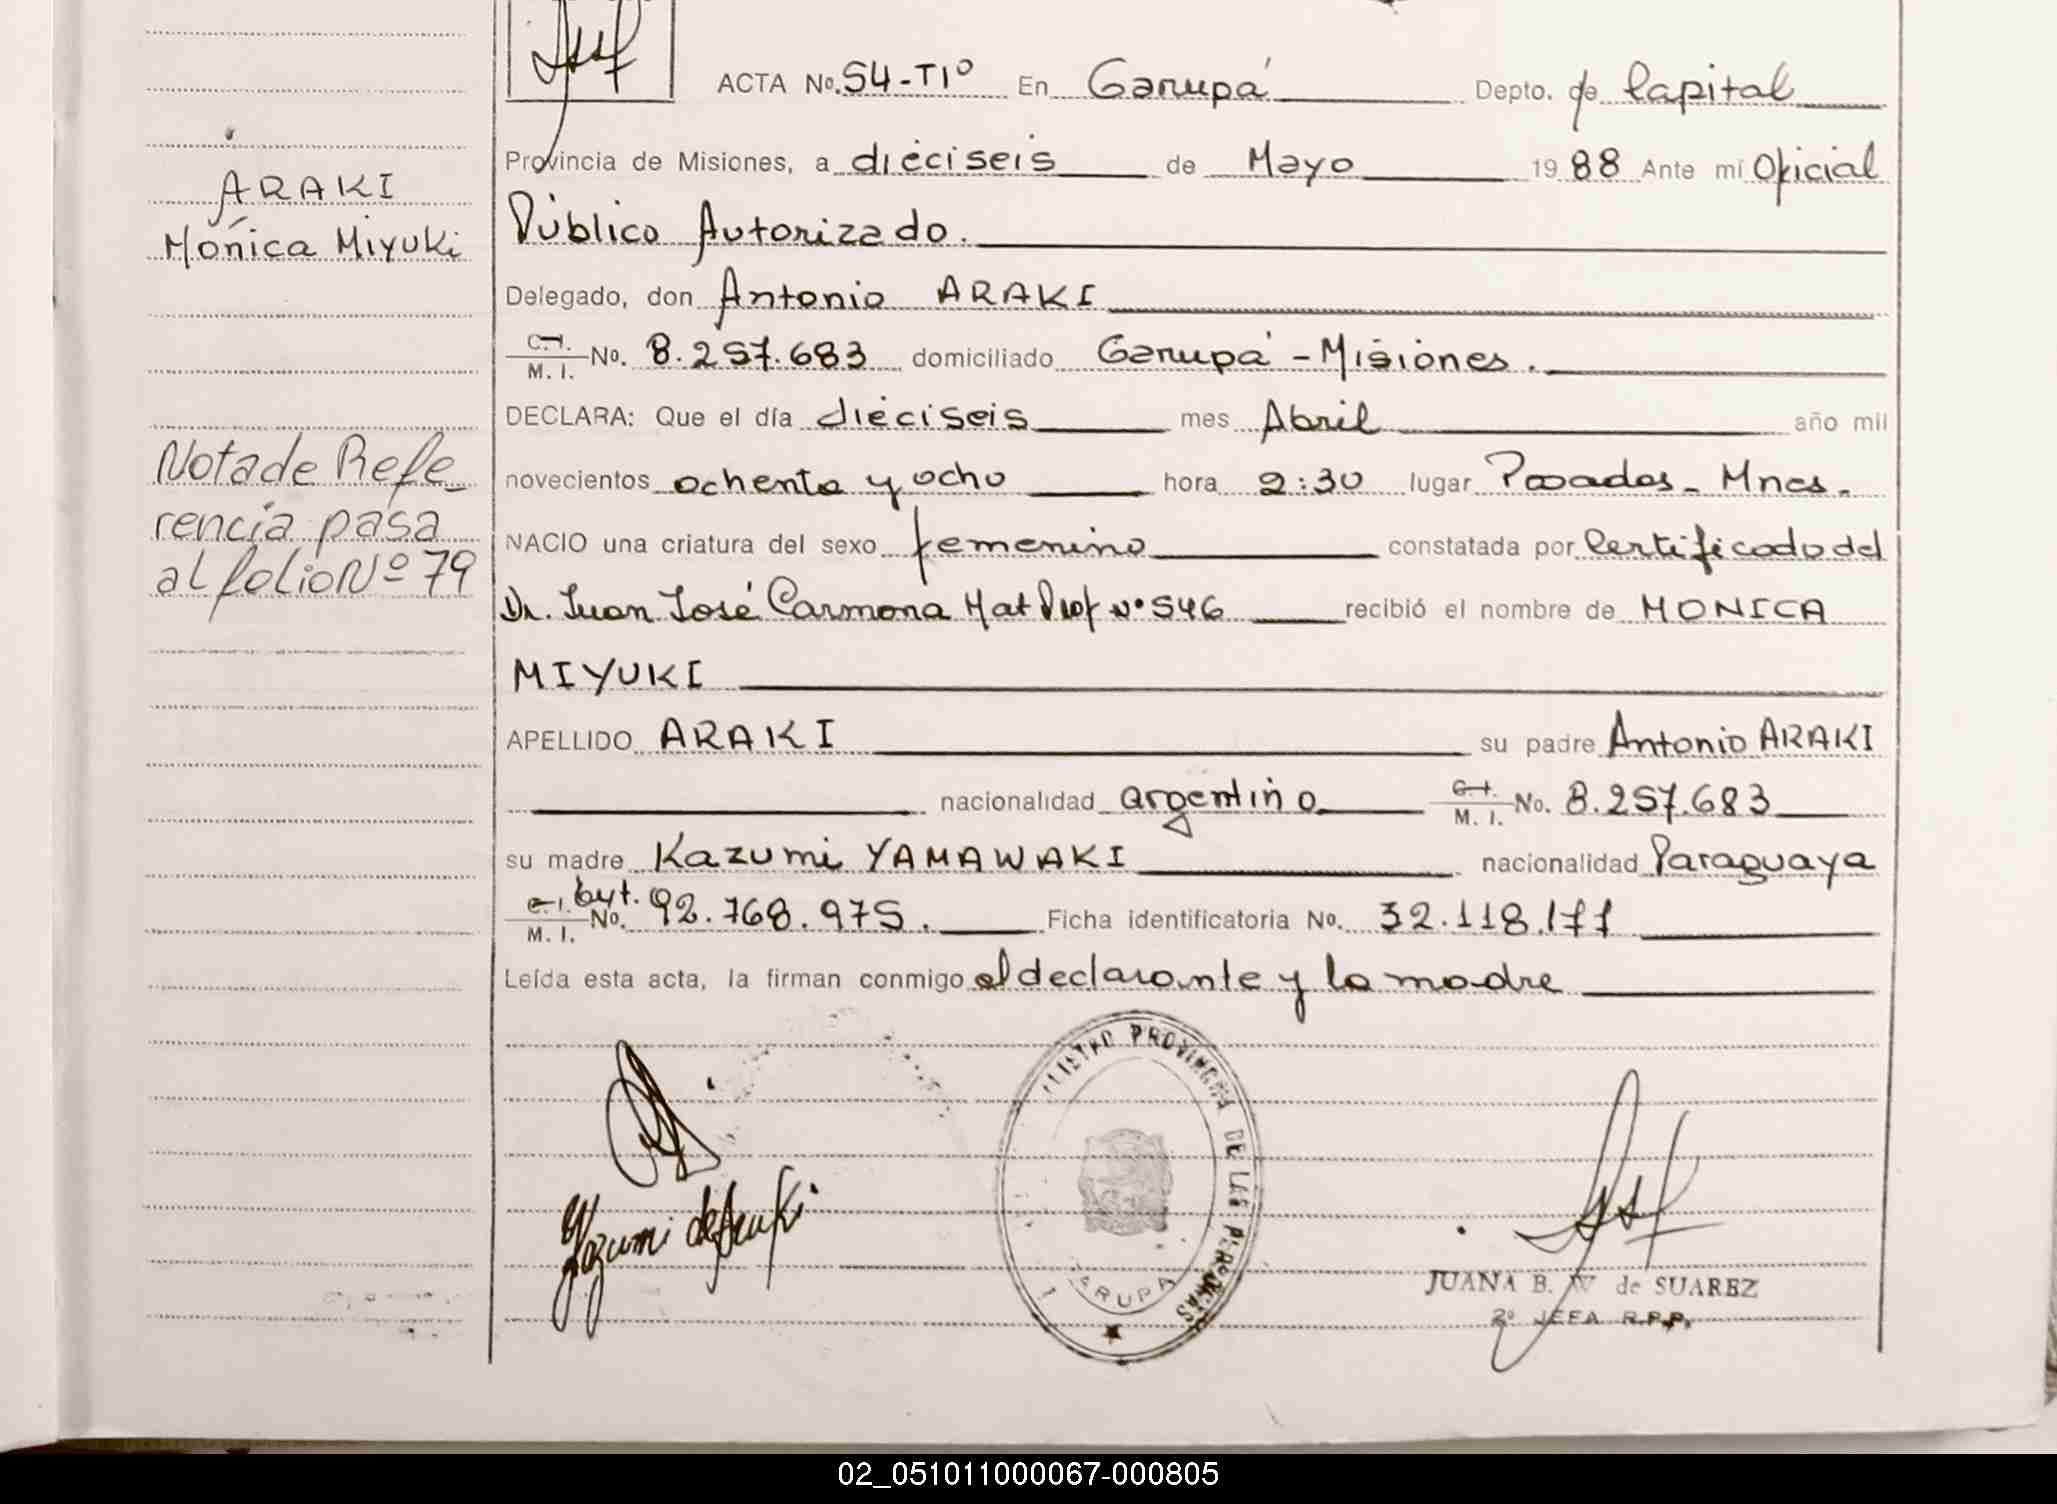 ACTA No. 54-T1º En Garupá Depto. de Capital
Provincia de Misiones, a dieciseis de Mayo 1988 Ante mí Oficial
Público Autorizado.
Delegado, don Antonio ARAKI
C.I. M. I. No. 8.257.683 domiciliado Garupá - Misiones.
DECLARA: Que el día dieciseis mes Abril año mil
novecientos ochenta y ocho hora 2:30 lugar Posadas - Mnes.
NACIO una criatura del sexo femenino constatada por Certificado del
Dr. Juan José Carmona Mat Prof Nº 546 recibió el nombre de MONICA
MIYUKI
APELLIDO ARAKI su padre Antonio ARAKI
nacionalidad argentino C.I. M. I. No. 8.257.683
su madre Kazumi YAMAWAKI nacionalidad Paraguaya
C.I. M. I. No. 92.768.975. Ficha identificatoria No. 32.118.177
Leída esta acta, la firman conmigo el declarante y la madre
ARAKI
Mónica Miyuki
Nota de Refe-
rencia pasa
al folio Nº 79
Kazumi de Araki
PROVINCIAL DE LAS PERSONAS
GARUPA
JUANA B. W de SUAREZ
2º JEFA R.P.P.
02_051011000067-000805